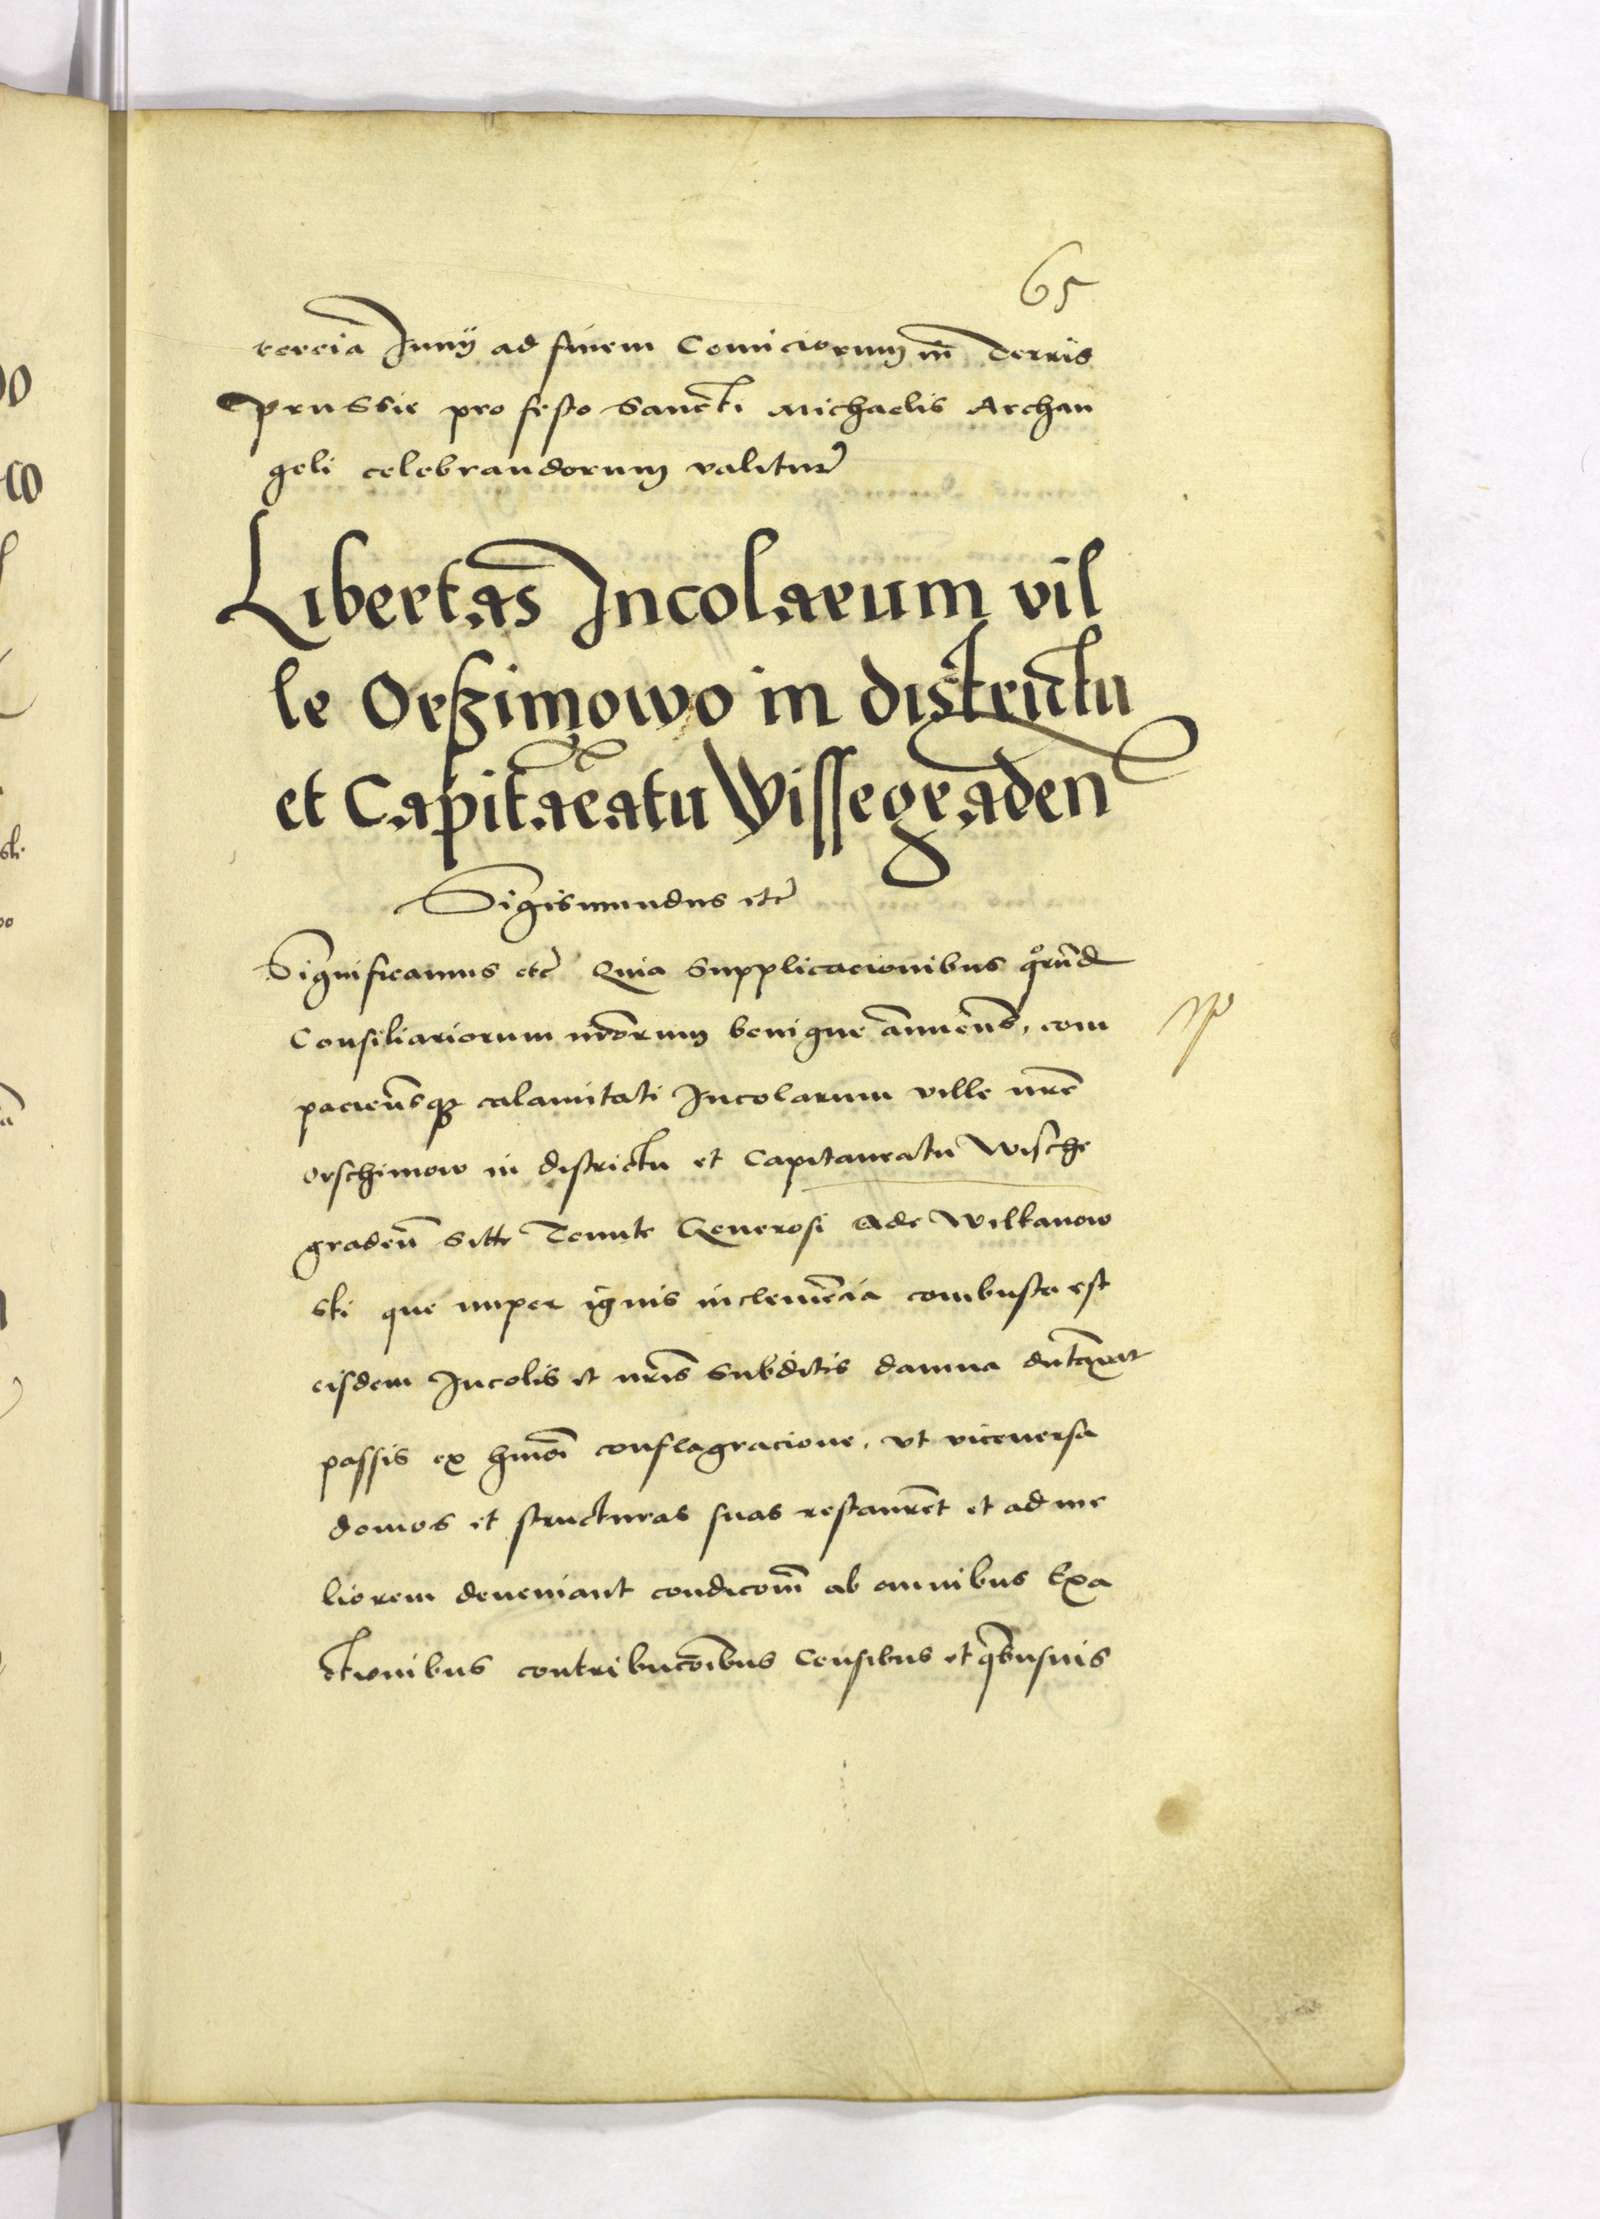 65
terciā Junij ad finem Comiciorum in Terris
Prussie pro festo Sancti Michaelis Archan
geli celebrandorum valitur̃
Libertas Incolarum vil
le Orßimowo in districtu
et Capitaneatu Wissegraden
Sigismundus etc̃
Significamus etc̃ Quia Supplicacionibus qrũd
Consiliariorum nrõrum benigne annueñs, com
pacieñsqꝫ calamitati Incolarum ville nrẽ
Orschimow in districtu et Capitaneatu Wische
gradeñ Sitte Tenute Generosi Ade Wilkanow
ski que nuper ignis inclemẽcia combusta est
eisdem Incolis et nrĩs Subditis damna dũtaxat
passis ex hmõi conflagracione, vt viceuersa
domos et structuras suas restaurẽt et ad me
liorem deueniant condicoñ̃ ab omnibus Exa
ctionibus contribucõibus Censibus et qbusuis